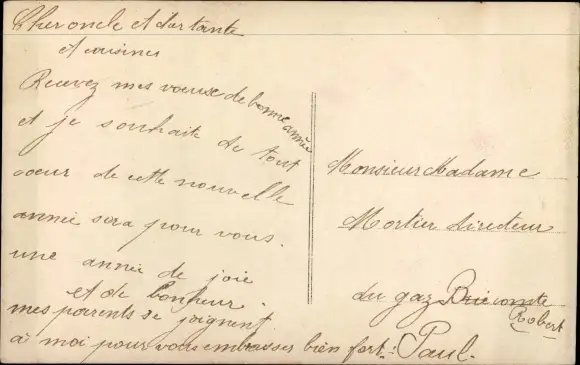 Cher oncle et cher tante
et cousines
Recevez mes vœuse de bonne année
et je souhaite de tout
coeur de cette nouvelle
année sera pour vous.
une année de joie
et de bonheur.
mes parents se joignent
à moi pour vous embrasser bien fort. Paul.
Monsieur Madame
Mortier directeur
du gaz Brie comte
Robert